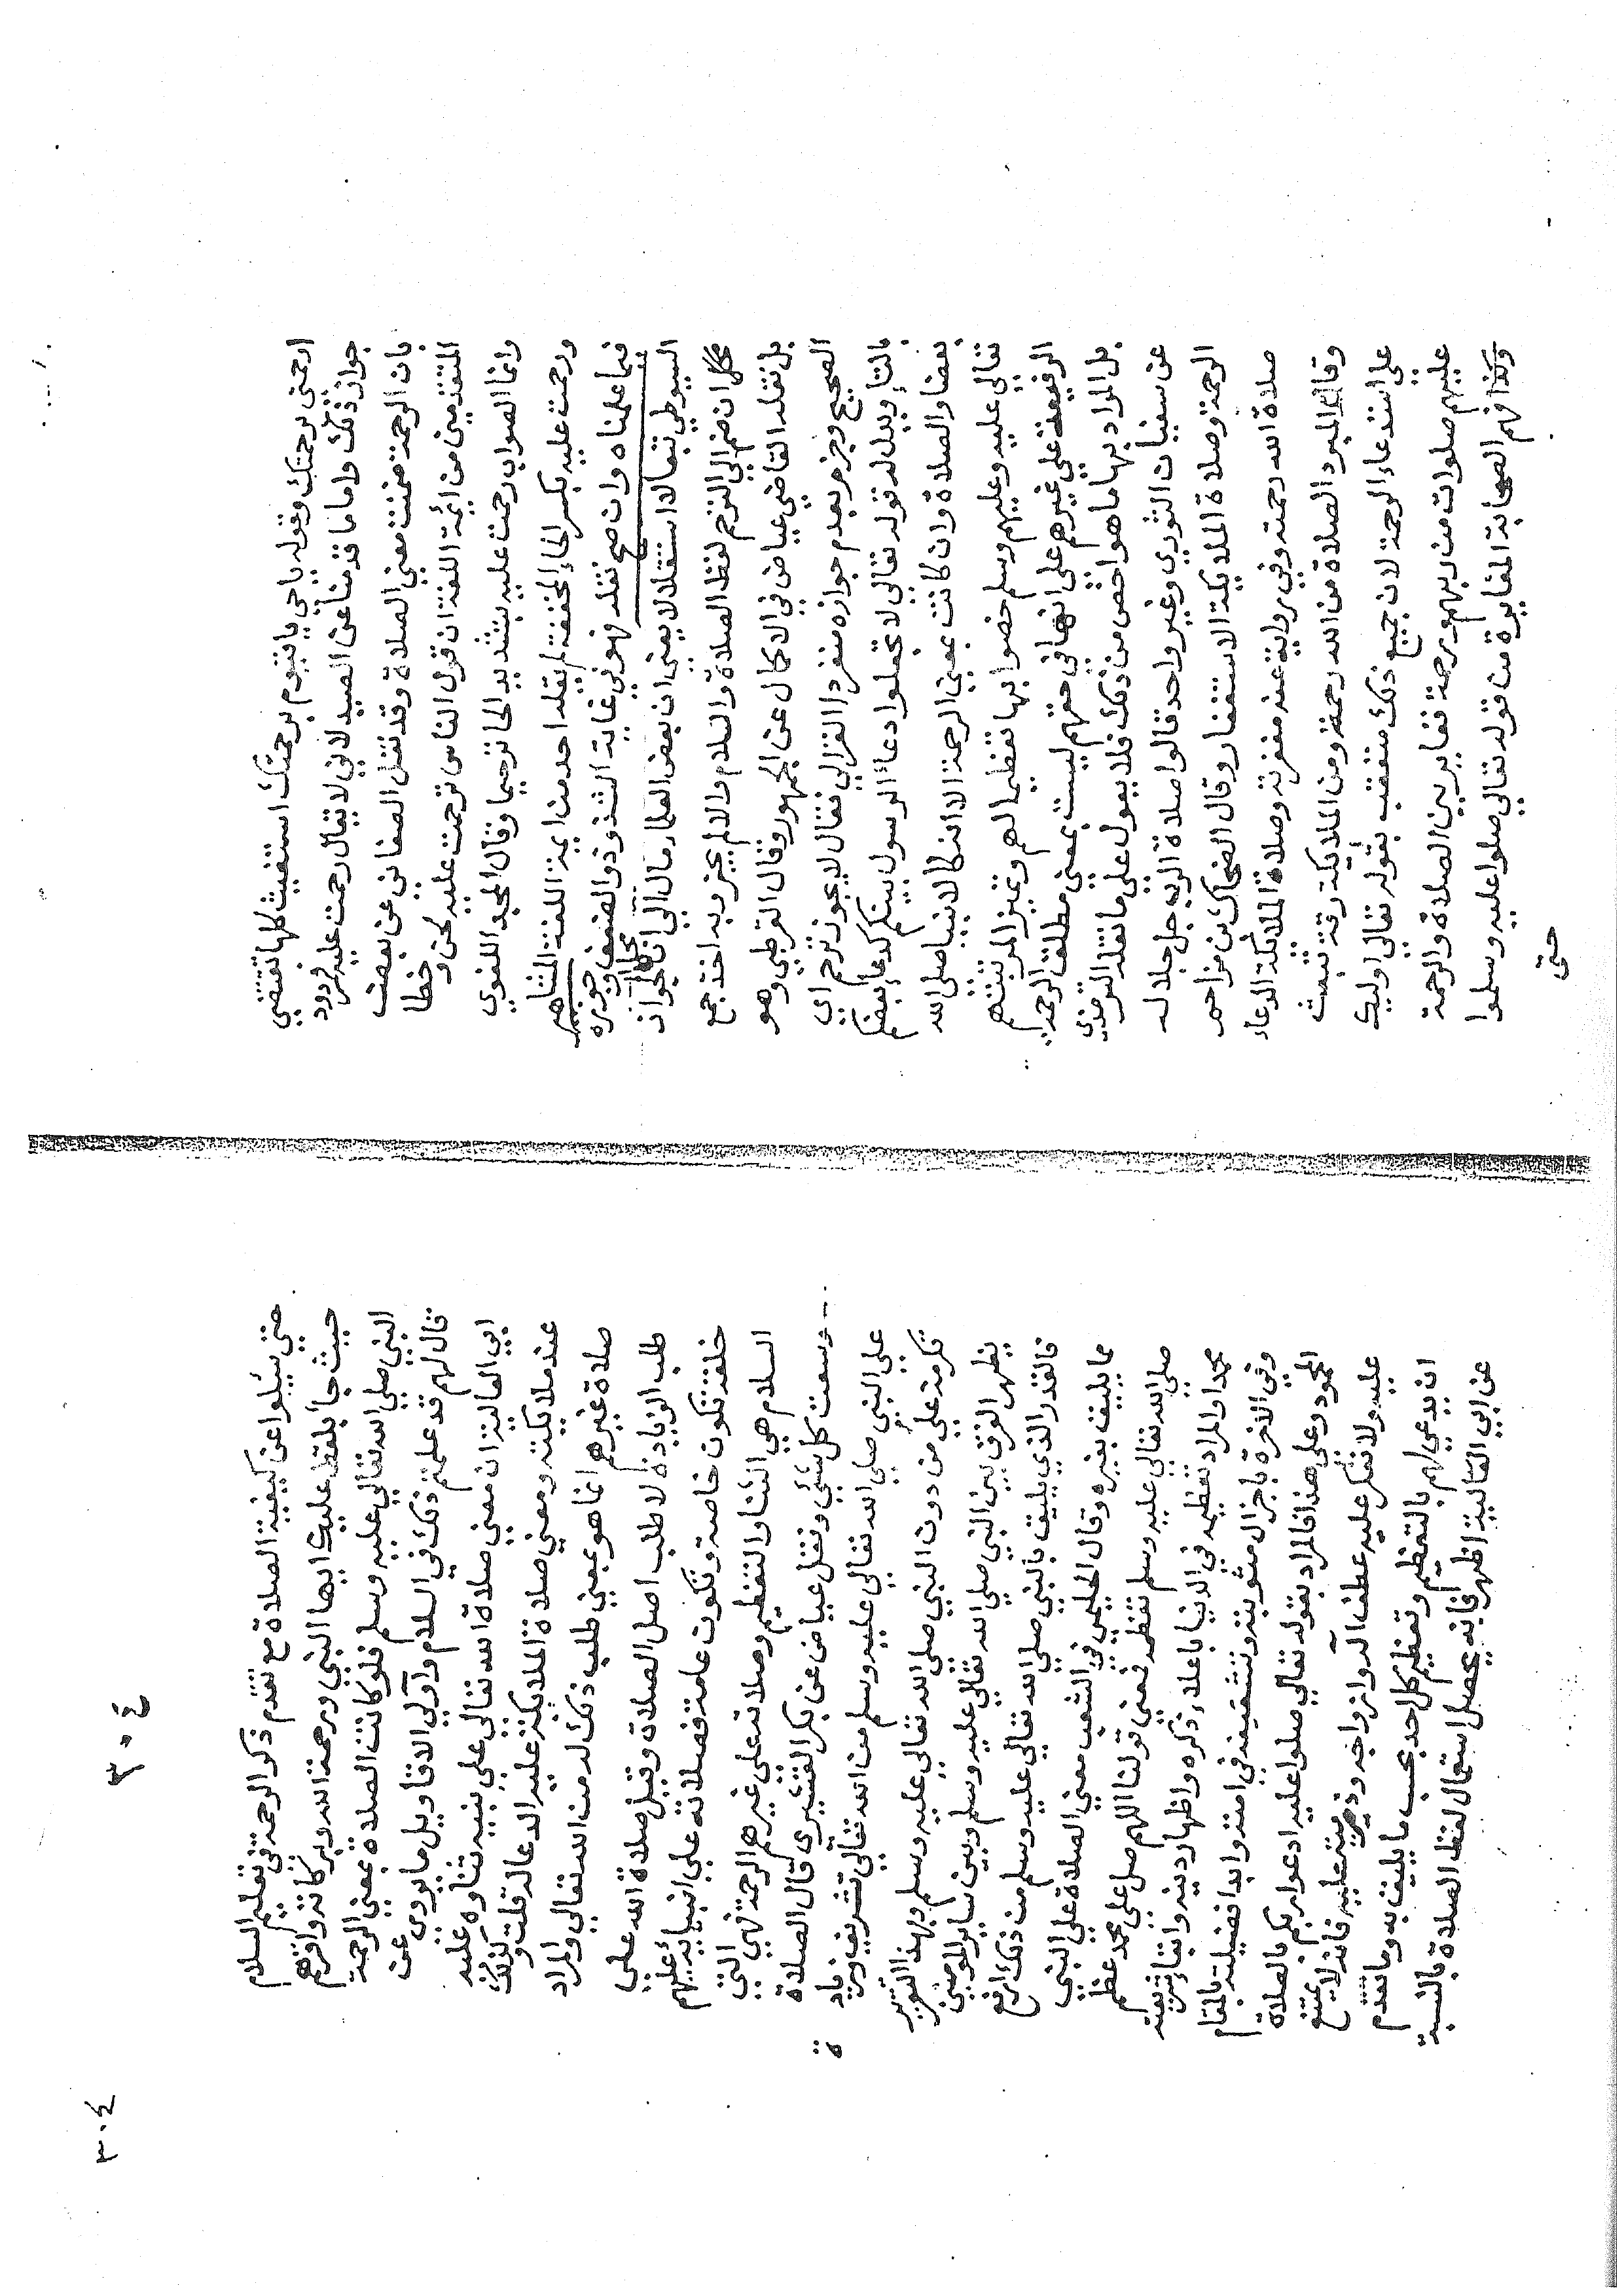 ارحمني برحمتك وقوله يا حي يا قيوم برحمتك استغيث كلها تقتضي
جواز ذلك واما ما قدمنا عن الصيدلاني لا يقال رحمت عليه فمردود
بان الرحمة ضمنت معني الصلاة وقد نقل الصغاني عن بعض
المتقدمين من ايمة اللغة ان قول الناس ترحمت عليه لحن وخطا
وانما الصواب رحمت عليه بتشديد الحا ترحيما وقال المجد اللغوي
ورحمت عليه بكسر الحاء المخففة لم يقله احد من ايمة اللغة المشاهير
فيما علمناه وان صح نقله فهو في غاية الشذوذ والضعف وجوزه
السيوطي تبعا لا استقلالا يعني ان بعض العلماء مال الي ان الجواز
محل ان ضم الي الترحم لفظ الصلاة والسلام والا لم يجز وبه اخذ جمع
بل نقله القاضي عياض في الاكمال عن الجمهور وقال القرطبي وهو
الصحيح وجزم بعدم جوازه منفردا الغزالي فقال لا يجوز ترحم اي
بالتاء ويدل له قوله تعالي لا تجعلوا دعاء الرسول بينكم كدعاء بعضكم
بعضا والصلاة وان كانت بمعني الرحمة الا ان الانبيا صلي الله
تعالي عليه وعليهم وسلم خصوا بها تعظيما لهم وتمييزا لمرتبتهم
الرفيعة علي غيرهم علي انها في حقهم ليست بمعني مطلق الرحمة
بل المراد بها ما هو اخص من ذلك فلا يعول علي ما نقله الترمذي
عن سفيان الثوري وغير واحد قالوا صلاة الرب جل جلاله
الرحمة وصلاة الملايكة الاستغفار وقال الضحاك بن مزاحم
صلاة الله رحمته وفي رواية عنه مغفرته وصلاة الملائكة الدعاء
وقال المبرد الصلاة من الله رحمة ومن الملايكة رقة تبعث
علي استدعاء الرحمة لان جميع ذلك متعقب بقوله تعالي اوليك
عليهم صلوات من ربهم ورحمة فغاير بين الصلاة والرحمة
وكذا فهم الصحابة المغايرة من قوله تعالي صلوا عليه وسلموا
حتي
٣٠٤
٣٠٤
حتي سيلوا عن كيفية الصلاة مع تقدم ذكر الرحمة في تعليم السلام
حيث جاء بلفظ عليك ايها النبي ورحمة الله وبركاته واقرهم
النبي صلي الله تعالي عليه وسلم فلو كانت الصلاة بمعني الرحمة
قال لهم قد علمتم ذلك في السلام واولي الاقاويل ما يروي عن
ابي العالية ان معني صلاة الله تعالي علي نبيه ثناوه عليه
عند ملايكته ومعني صلاة الملايكة عليه الدعا له قلت وكذلك
صلاة غيرهم انما هو بمعني طلب ذلك له من الله تعالي والمراد
طلب الزيادة لا طلب اصل الصلاة وقيل صلاة الله علي
خلقه تكون خاصة وتكون عامة فصلاته علي انبيايه عليهم
السلام هي الثناء والتعظيم وصلاته علي غيرهم الرحمة فهي التي
وسعت كل شيء ونقل عياض عن بكر القشيري قال الصلاة
علي النبي صلي الله تعالي عليه وسلم من الله تعالي تشريف وزيادة
تكرمة علي من دون النبي صلي الله تعالي عليه وسلم وبهذا التقرير
يظهر الفرق بين النبي صلي الله تعالي عليه وسلم وبين ساير المومنين
فالقدر الذي يليق بالنبي صلي الله تعالي عليه وسلم من ذلك ارفع
مما يليق بغيره وقال الحليمي في الشعب معني الصلاة علي النبي
صلي الله تعالي عليه وسلم تعظيمه فمعني قولنا اللهم صل علي محمد عظم
محمدا والمراد تعظيمه في الدنيا باعلاء ذكره واظهار دينه وابقاء شريعته
وفي الاخرة باجزال مثوبته وتشفيعه في امته وابدا فضيلته بالمقام
المحمود وعلي هذا فالمراد بقوله تعالي صلوا عليه ادعوا ربكم بالصلاة
عليه ولا تعكر عليه عطف آله وازواجه وذريته عليه فانه لا يمتنع
ان يدعي لهم بالتعظيم وتعظيم كل احد بحسب ما يليق به وما تقدم
عن ابي العالية اظهر فانه يحصل استعمال لفظ الصلاة بالنسبة